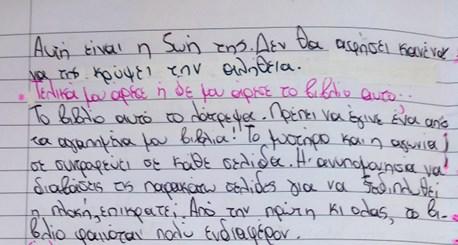 Αυτή είναι η ζωή της. Δεν θα αφήσει κανέναν
να της κρύψει την αλήθεια.
Τελικά μου άρεσε ή δε μου άρεσε το βιβλίο αυτό..
Το βιβλίο αυτό το λάτρεψα. Πρέπει να έγινε ένα από
τα αγαπημένα μου βιβλία!! Το μυστήριο και η αγωνία
σε συντροφεύει σε κάθε σελίδα. Η ανυπομονησία να
διαβάσεις τις παρακάτω σελίδες για να ξεδιπλωθεί
η πλοκή, επικρατεί. Από την πρώτη κιόλας, το βι-
βλίο φαινόταν πολύ ενδιαφέρον.